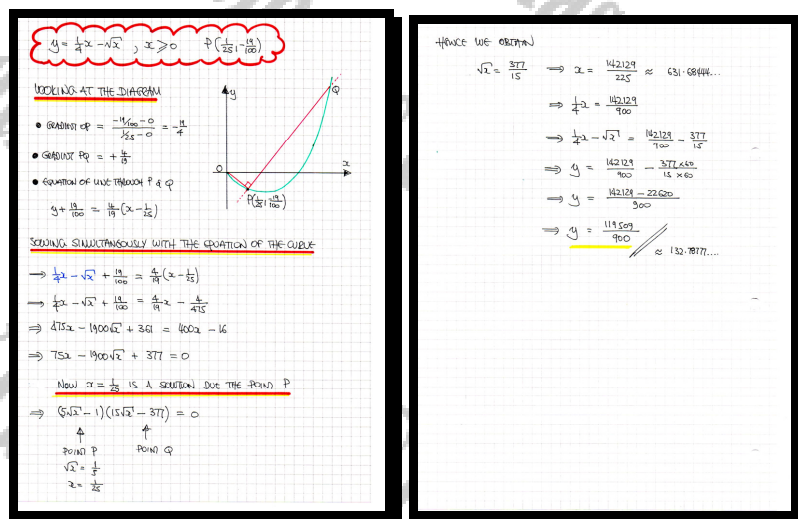 y = 1/4 x - √x , x ≥ 0 P(1/25, -19/100)
LOOKING AT THE DIAGRAM
• GRADIENT OP = (-19/100 - 0)/(1/25 - 0) = -19/4
• GRADIENT PQ = + 4/19
• EQUATION OF LINE THROUGH P & Q
y + 19/100 = 4/19 (x - 1/25)
y
Q
x
O
P(1/25, -19/100)
SOLVING SIMULTANEOUSLY WITH THE EQUATION OF THE CURVE
⇒ 1/4 x - √x + 19/100 = 4/19 (x - 1/25)
⇒ 1/4 x - √x + 19/100 = 4/19 x - 4/475
⇒ 475x - 1900√x + 361 = 400x - 16
⇒ 75x - 1900√x + 377 = 0
NOW x = 1/25 IS A SOLUTION DUE THE POINT P
⇒ (5√x - 1)(15√x - 377) = 0
↑ ↑
POINT P POINT Q
√x = 1/5
x = 1/25
HENCE WE OBTAIN
√x = 377/15 ⇒ x = 142129/225 ≈ 631.68444...
⇒ 1/4 x = 142129/900
⇒ 1/4 x - √x = 142129/900 - 377/15
⇒ y = 142129/900 - 377×60/15×60
⇒ y = (142129 - 22620)/900
⇒ y = 119509/900
≈ 132.78777....